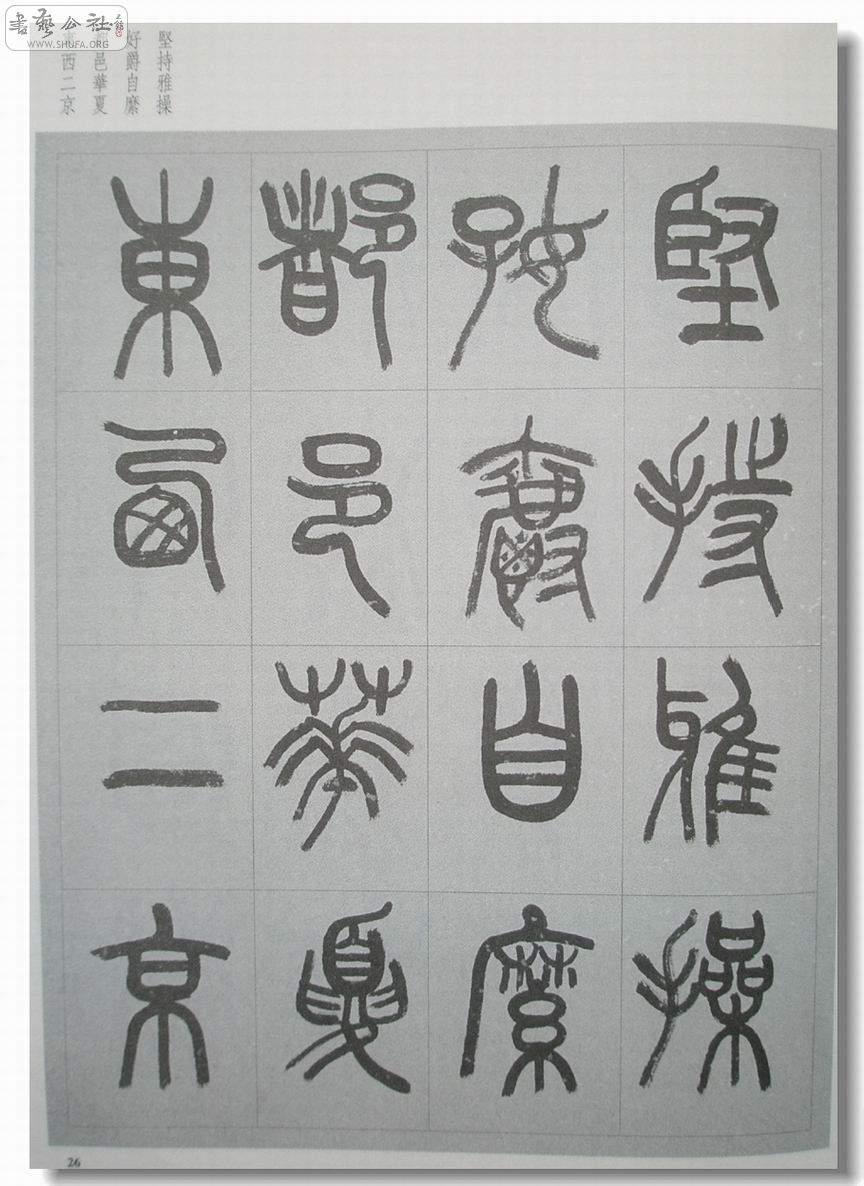 書藝公社
WWW.SHUFA.ORG
堅持雅操
好爵自縻
都邑華夏
東西二京
堅持雅操
好爵自縻
都邑華夏
東西二京
26